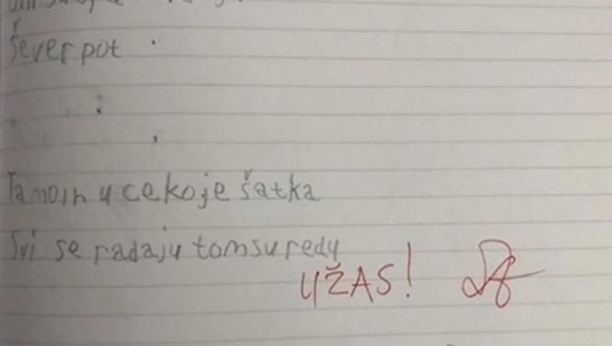 Šever pot
u cekoje šatka
Svi se radaju tomsuredu
UŽAS!